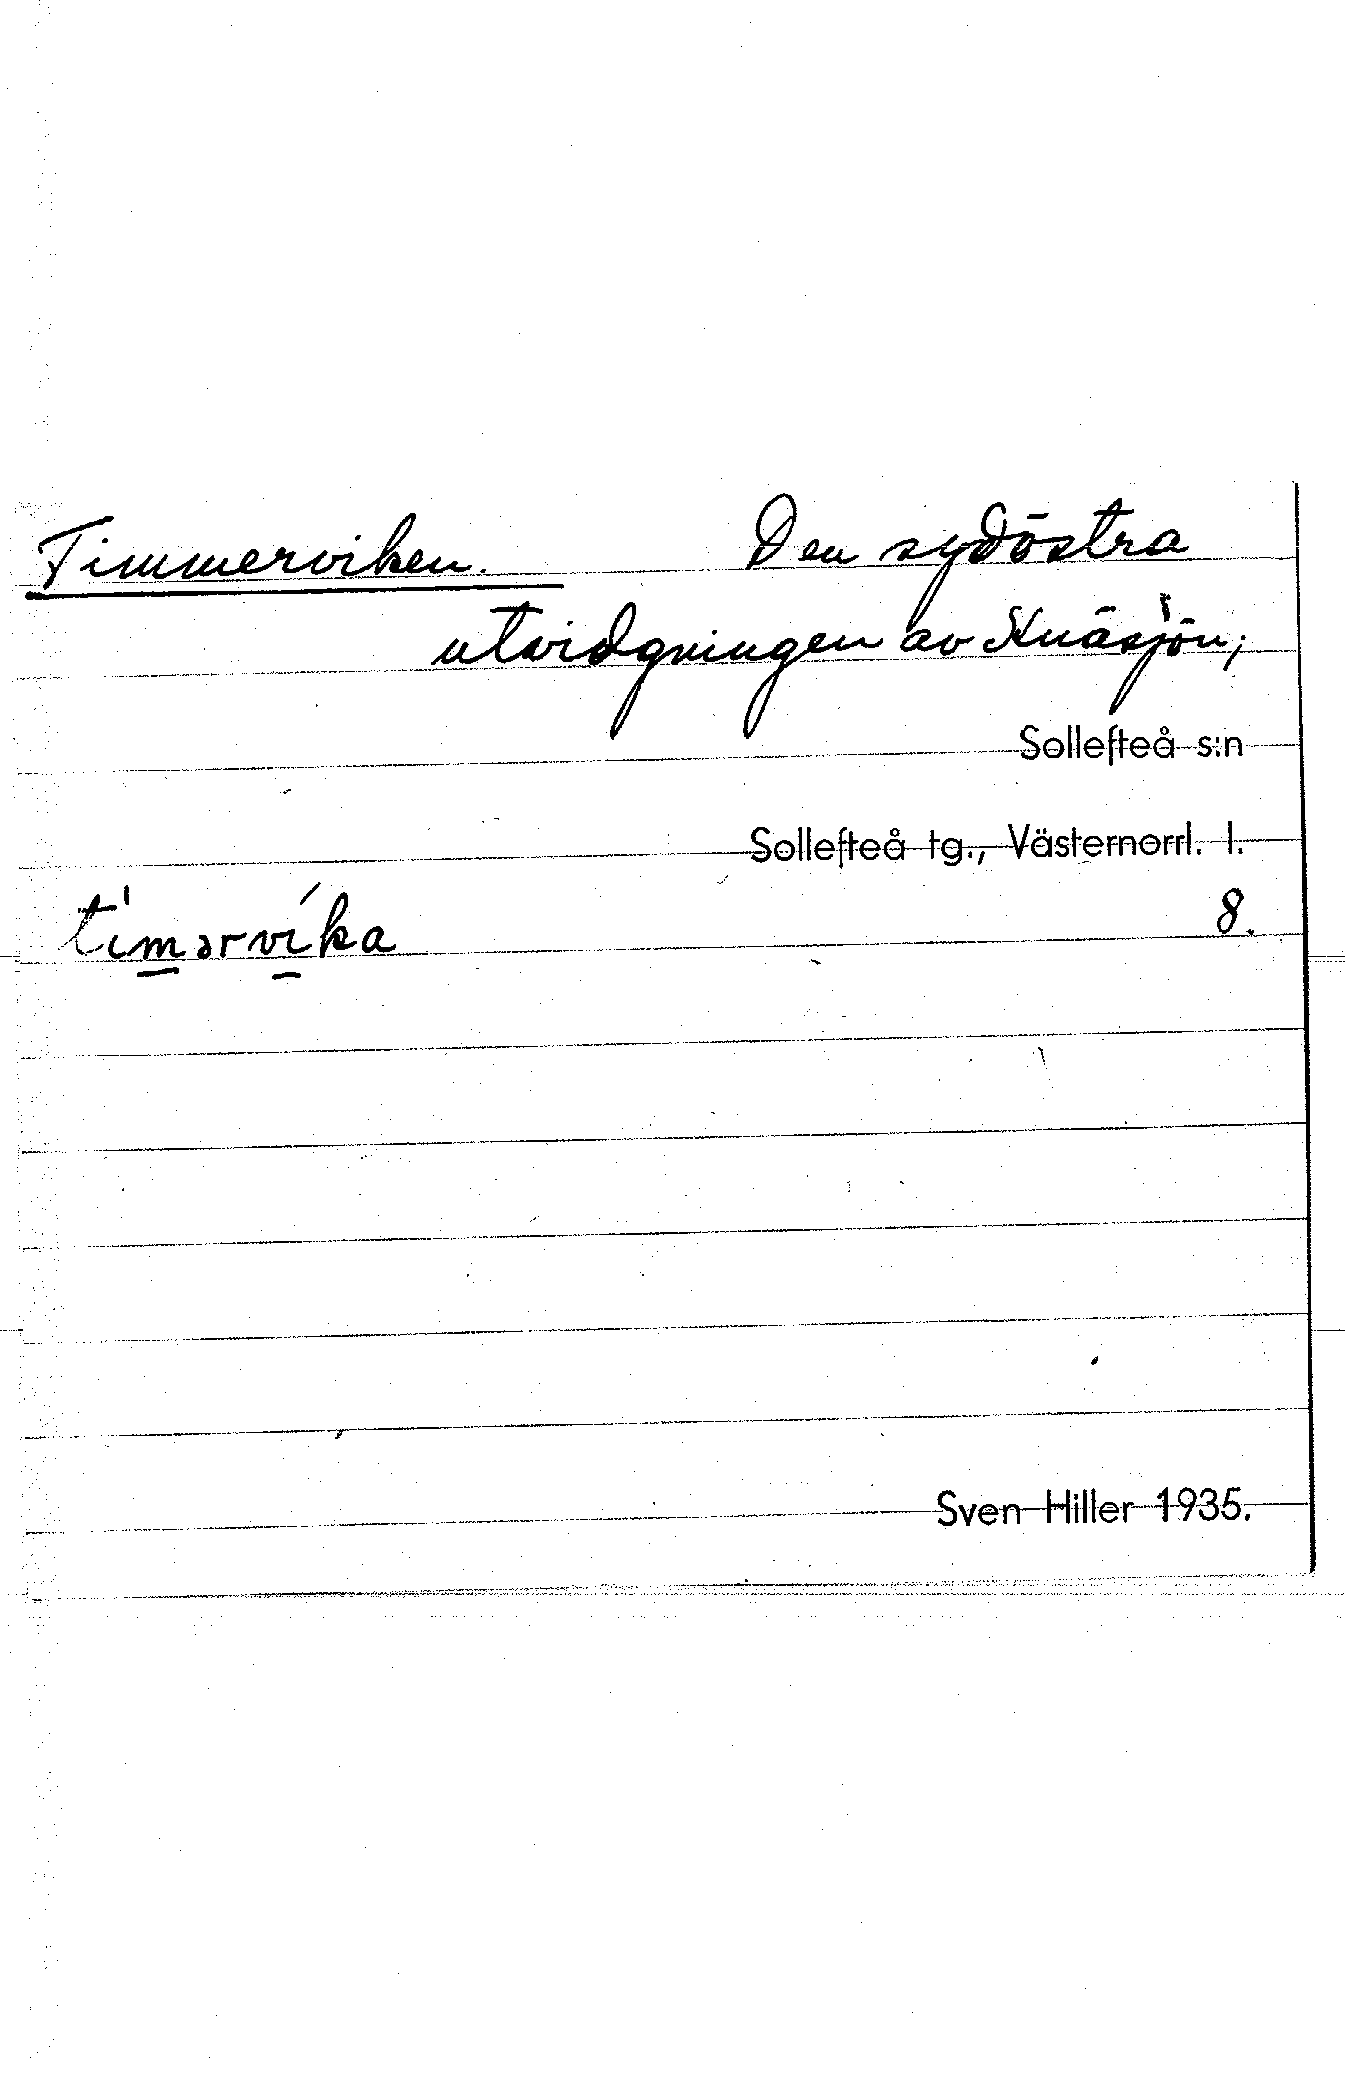 Timmerviken. Den sydöstra
utvidgningen av Knäsjön;
Sollefteå s:n
Sollefteå tg., Västernorrl. l.
tìmərvíka 8.
Sven Hiller 1935.